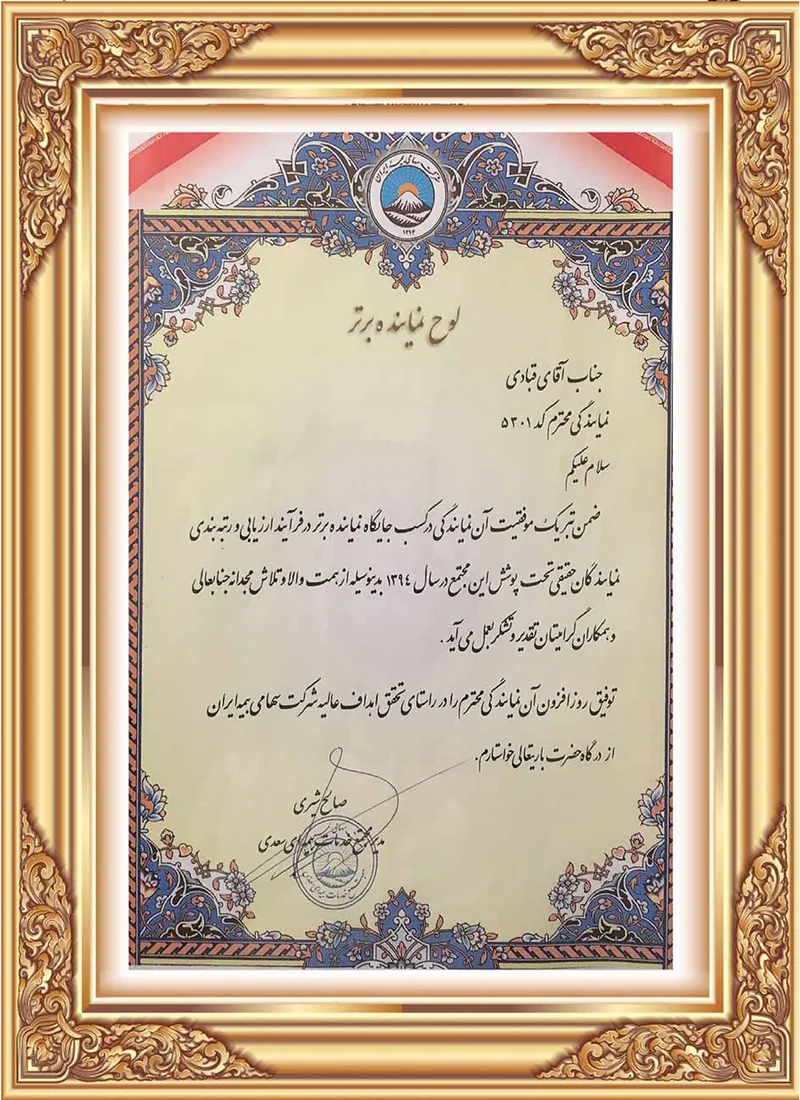 شرکت سهامی بیمه ایران
۱۳۱۴
لوح نماینده برتر
جناب آقای قبادی
نمایندگی محترم کد ۵۳۰۱
سلام علیکم
ضمن تبریک موفقیت آن نمایندگی در کسب جایگاه نماینده برتر در فرآیند ارزیابی و رتبه بندی
نمایندگان حقیقی تحت پوشش این مجتمع در سال ۱۳۹۴ بدینوسیله از همت والا و تلاش مجدانه جنابعالی
و همکاران گرامیتان تقدیر و تشکر بعمل می آید .
توفیق روزافزون آن نمایندگی محترم را در راستای تحقق اهداف عالیه شرکت سهامی بیمه ایران
از درگاه حضرت باریتعالی خواستارم.
صالح شیری
مدیر مجتمع خدمات بیمه ای سعدی